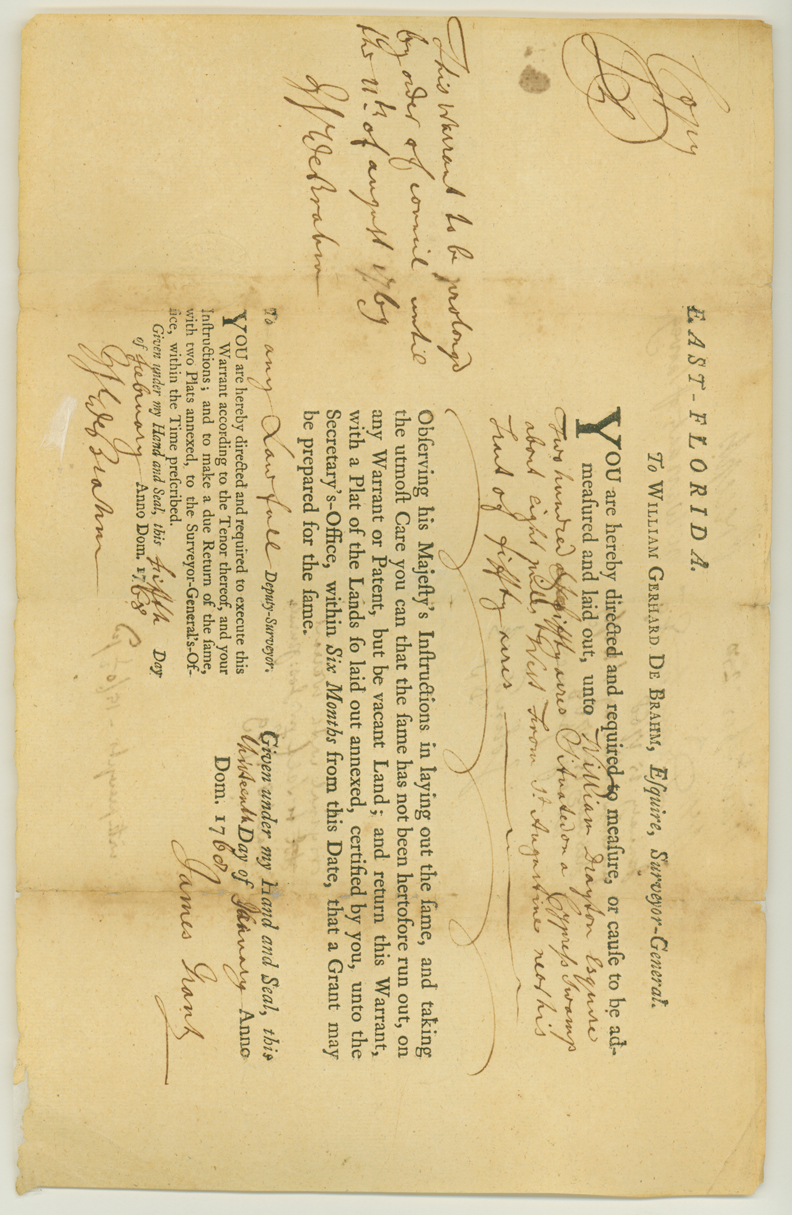 Copy
EAST-FLORIDA.
To WILLIAM GERHARD DE BRAHM, Eſquire, Surveyor-General.
YOU are hereby directed and required to meaſure, or cauſe to be ad-
meaſured and laid out, unto William Drayton Esquire
Two hundred & fiffty acres Situated on a Cypress Swamp
about eight miles West From St. Augustine near his
tract of fiffty acres
This Warrant to be prolongd
by order of council until
the 11th. of august 1769
Obſerving his Majeſty's Inſtructions in laying out the ſame, and taking
the utmoſt Care you can that the ſame has not been hertofore run out, on
any Warrant or Patent, but be vacant Land; and return this Warrant,
with a Plat of the Lands ſo laid out annexed, certified by you, unto the
Secretary's-Office, within Six Months from this Date, that a Grant may
be prepared for the ſame.
WDeBrahm
Given under my Hand and Seal, this
thirteenth Day of January Anno
Dom. 1768
James Grant
To any Lawfull Deputy-Surveyor.
YOU are hereby directed and required to execute this
Warrant according to the Tenor thereof, and your
Inſtructions; and to make a due Return of the ſame,
with two Plats annexed, to the Surveyor-General's-Of-
fice, within the Time preſcribed.
Given under my Hand and Seal, this fifth Day
of February Anno Dom. 1768
WDeBrahm